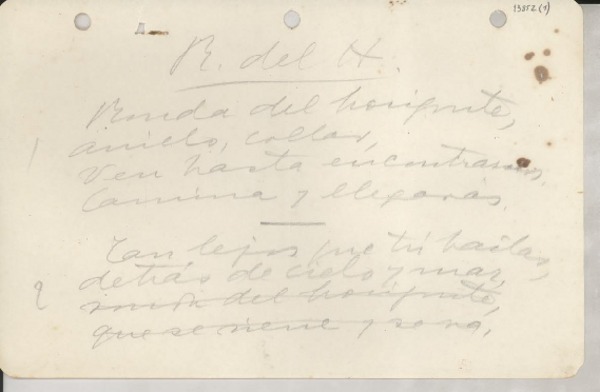 13852(1)
R. del H.
Ronda del horizonte,
1 anillo, collar,
Ven hasta encontrarnos.
Camina y llegarás.
2 Tan lejos que tú bailas,
detrás de cielo y mar,
ronda del horizonte,
que se viene y se va.